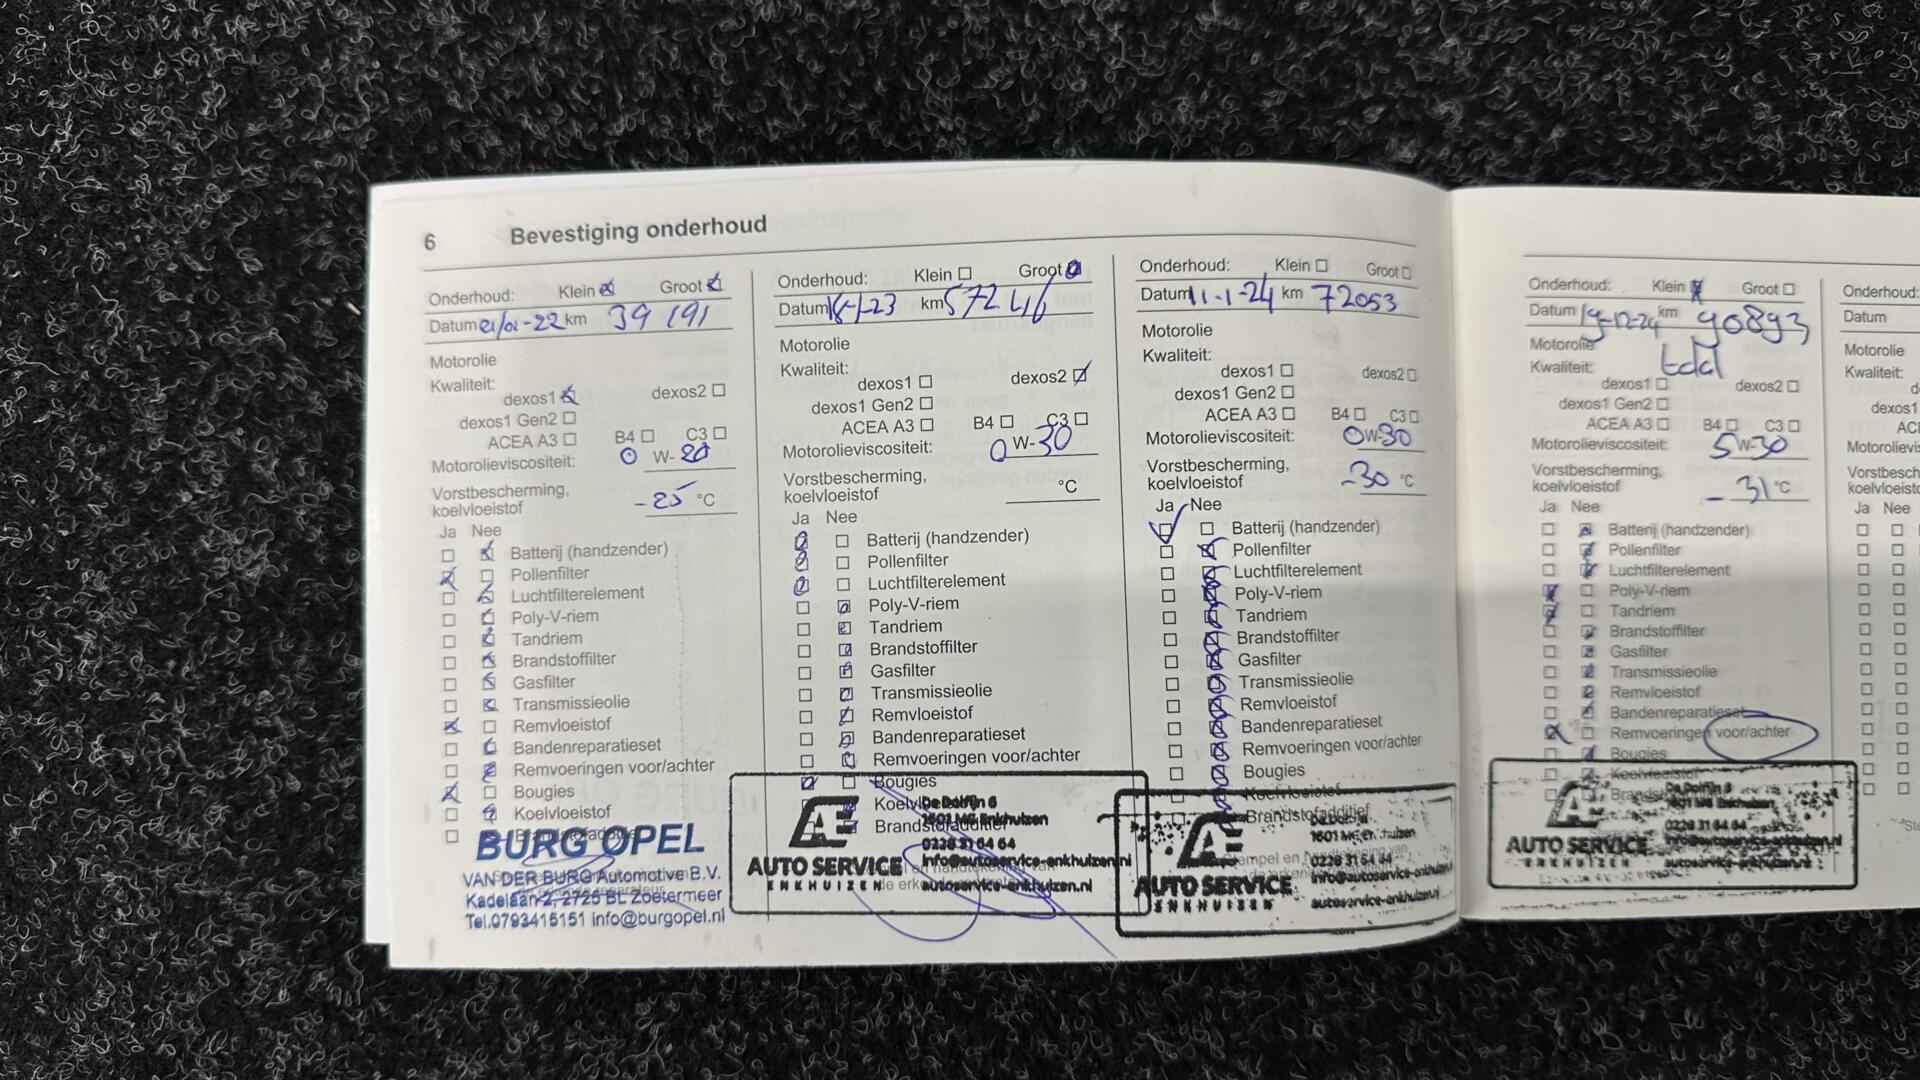 6 Bevestiging onderhoud
Onderhoud: Klein Groot
Datum km 39 191
Motorolie
Kwaliteit:
dexos1 dexos2
dexos1 Gen2
ACEA A3 B4 C3
Motorolieviscositeit: 0 W-20
Vorstbescherming,
koelvloeistof -25 °C
Ja Nee
Batterij (handzender)
Pollenfilter
Luchtfilterelement
Poly-V-riem
Tandriem
Brandstoffilter
Gasfilter
Transmissieolie
Remvloeistof
Bandenreparatieset
Remvoeringen voor/achter
Bougies
Koelvloeistof
BURG OPEL
VAN DER BURG Automotive B.V.
Kadelaan 2, 2725 BL Zoetermeer
Tel.0793415151 info@burgopel.nl
Onderhoud: Klein Groot
Datum km 57246
Motorolie
Kwaliteit:
dexos1 dexos2
dexos1 Gen2
ACEA A3 B4 C3
Motorolieviscositeit: 0 W-30
Vorstbescherming,
koelvloeistof °C
Ja Nee
Batterij (handzender)
Pollenfilter
Luchtfilterelement
Poly-V-riem
Tandriem
Brandstoffilter
Gasfilter
Transmissieolie
Remvloeistof
Bandenreparatieset
Remvoeringen voor/achter
Bougies
De Dolfijn 6
Brandstofadditief
1601 MG Enkhuizen
0228 31 64 64
info@autoservice-enkhuizen.nl
autoservice-enkhuizen.nl
AUTO SERVICE
ENKHUIZEN
Onderhoud: Klein Groot
Datum 11-1-24 km 72053
Motorolie
Kwaliteit:
dexos1 dexos2
dexos1 Gen2
ACEA A3 B4 C3
Motorolieviscositeit: 0W-30
Vorstbescherming,
koelvloeistof -30 °C
Ja Nee
Batterij (handzender)
Pollenfilter
Luchtfilterelement
Poly-V-riem
Tandriem
Brandstoffilter
Gasfilter
Transmissieolie
Remvloeistof
Bandenreparatieset
Remvoeringen voor/achter
Bougies
Koelvloeistof
Brandstofadditief
0228 31 64 64
info@autoservice-enkhuizen.nl
autoservice-enkhuizen.nl
AUTO SERVICE
ENKHUIZEN
Onderhoud: Klein Groot
Datum 19-12-24 km 90893
Motorolie
Kwaliteit:
dexos1 dexos2
dexos1 Gen2
ACEA A3 B4 C3
Motorolieviscositeit: 5W-30
Vorstbescherming,
koelvloeistof -31 °C
Ja Nee
Batterij (handzender)
Pollenfilter
Luchtfilterelement
Poly-V-riem
Tandriem
Brandstoffilter
Gasfilter
Transmissieolie
Remvloeistof
Bandenreparatieset
Remvoeringen voor/achter
Bougies
Koelvloeistof
0228 31 64 64
AUTO SERVICE
ENKHUIZEN
Onderhoud:
Datum
Motorolie
Kwaliteit:
dexos1
Ja Nee